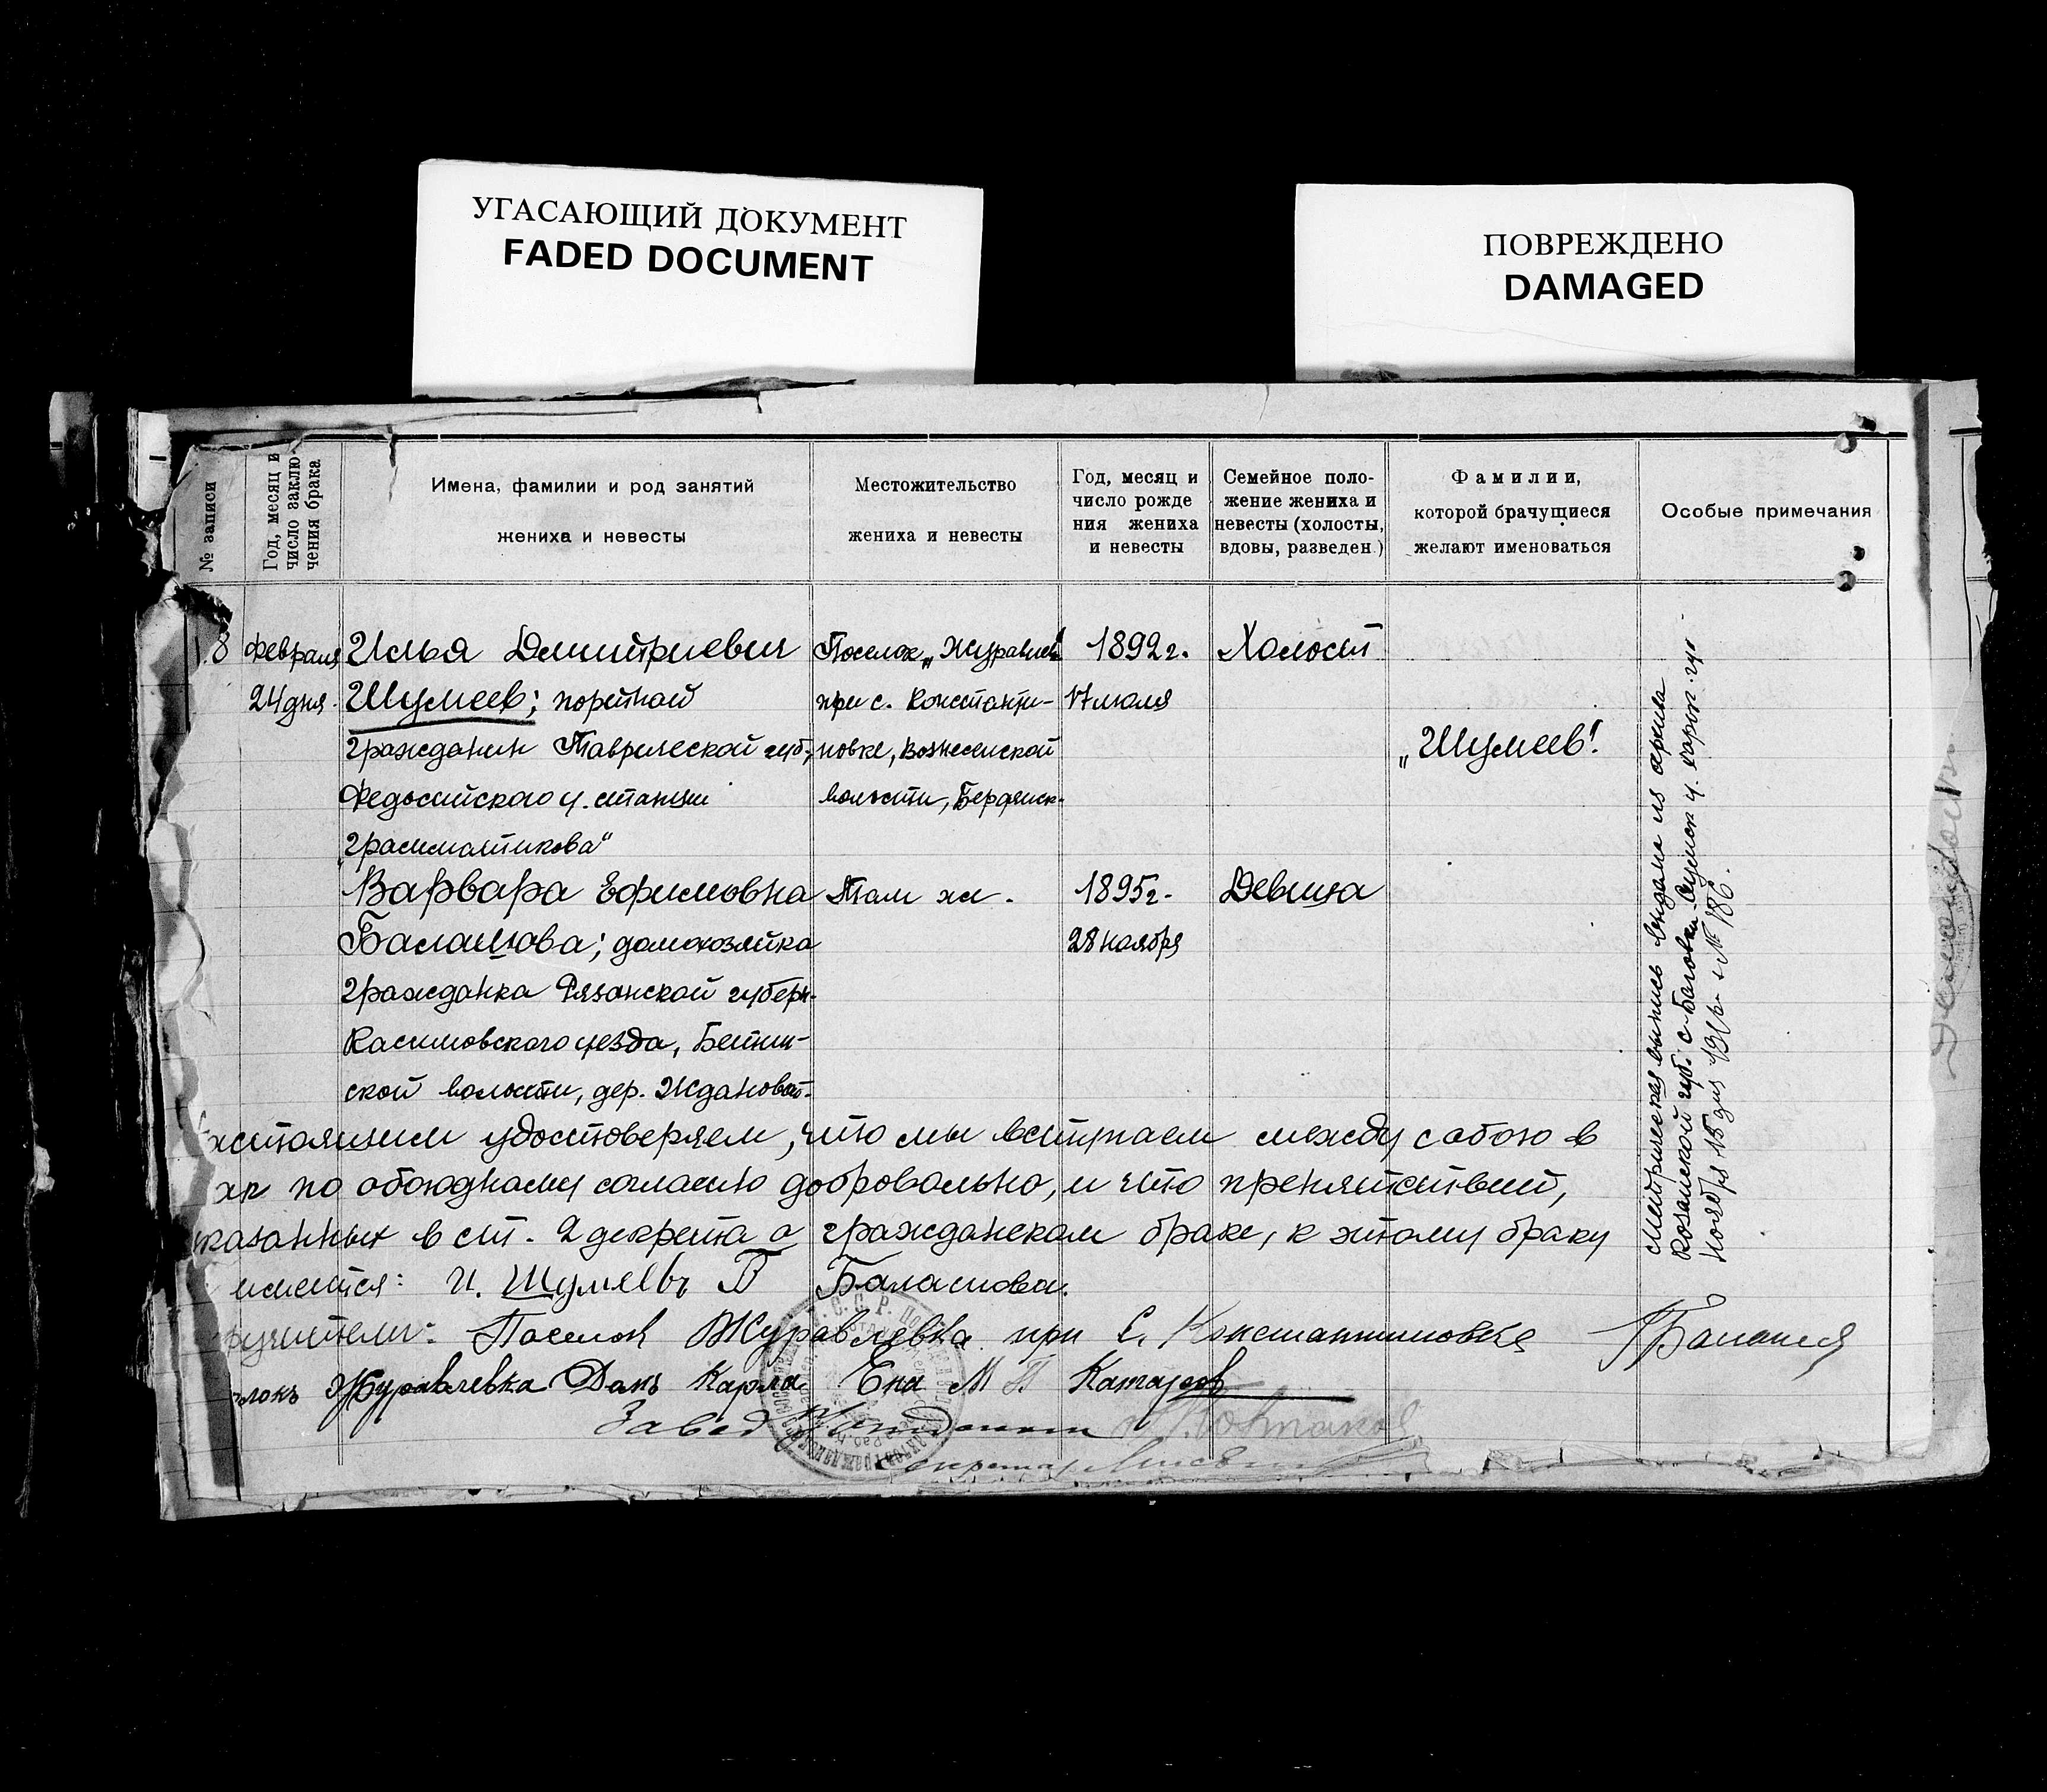 УГАСАЮЩИЙ ДОКУМЕНТ
FADED DOCUMENT
ПОВРЕЖДЕНО
DAMAGED
№ записи
Год, месяц и
число заклю-
чения брака
Имена, фамилии и род занятий
жениха и невесты
Местожительство
жениха и невесты
Год, месяц и
число рожде
ния жениха
и невесты
Семейное поло-
жение жениха и
невесты (холосты,
вдовы, разведен.)
Фамилии,
которой брачущиеся
желают именоваться
Особые примечания
8
февраля
24 дня
Илья Дмитриевич
Шумеев; портной
гражданин Таврической губ.,
Федосийского у. станции
„Грамматикова“
Поселок „Журавлев“
при с. Константи-
новке, Вознесенской
волости, Бердянск.
1892 г.
17 июля
Холост
„Шумеев“.
Варвара Ефимовна
Балашова; домохозяйка
гражданка Рязанской губерн.
Касимовского уезда,
ской волости, дер. Ждановой.
Там же.
1895 г.
28 ноября
Девица
Метрическая выпись выдана из архива
с.
Ноября 15 дня № 186.
астоящим удостоверяем, что мы вступаем между собою в
ак по обоюдному согласию добровольно, и что препятствий,
казанных в ст. 2 декрета о гражданском браке, к этому браку
имеется: И. Шумеевъ В Балашова.
ручители: Поселок Журавлевка при С. Константиновке
елокъ Журавлевка Карла
Завед